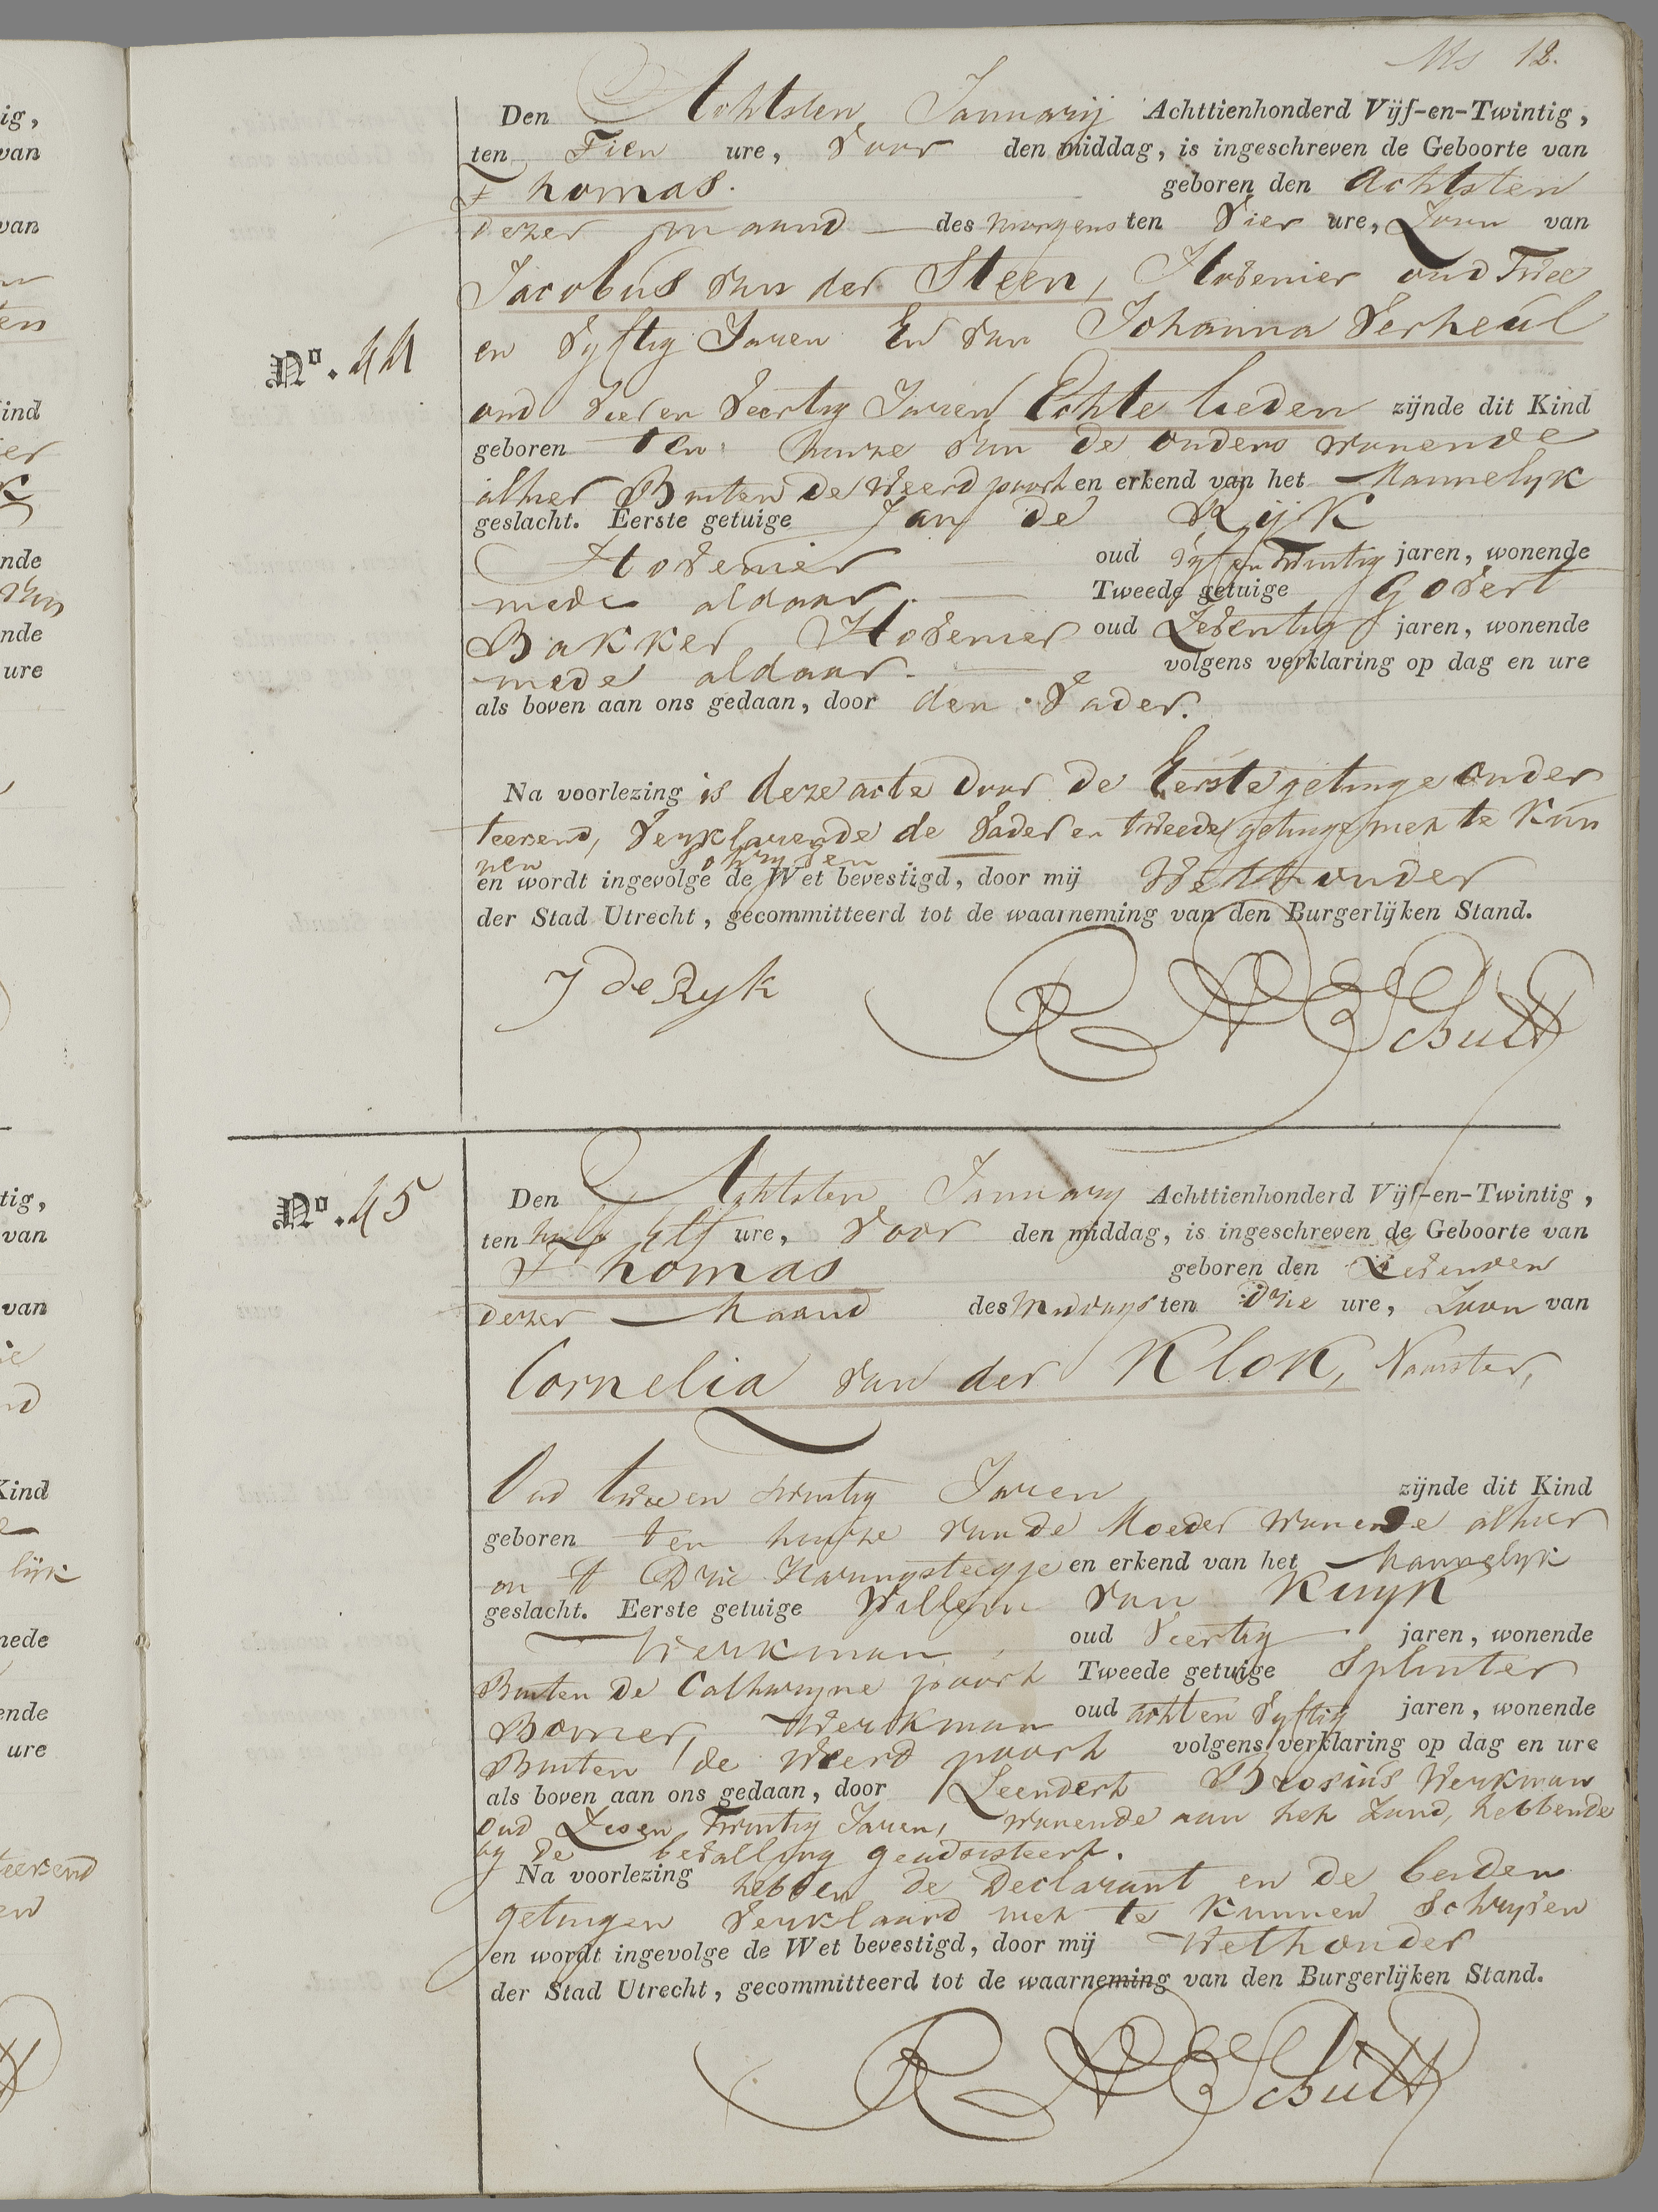 12.
Den Achtsten Januarij Achttienhonderd Vijf-en-Twintig,
ten Tien ure, voor den middag, is ingeschreven de Geboorte van
Thomas. geboren den Achtsten
dezer maand des morgens ten vier ure, Zoon van
Jacobus van der Steen, Hovenier oud Twee
en vyftig Jaren En van Johanna Verheul
No. 44
oud vier en veertig Jaren Echte lieden zijnde dit Kind
geboren ten huize van de ouders wonende
alhier Buiten de Weerd poort en erkend van het Mannelyk
geslacht. Eerste getuige Jan de Rijk
Hovenier oud vyf en twintig jaren, wonende
mede aldaar. Tweede getuige Govert
Bakker Hovenier oud Zeventig jaren, wonende
mede aldaar. volgens verklaring op dag en ure
als boven aan ons gedaan, door den Vader.
Na voorlezing is deze acte door de Eerste getuige onder
teekend, verklarende de Vader en tweede getuige niet te kun
nen schryven
en wordt ingevolge de Wet bevestigd, door mij Wethouder
der Stad Utrecht, gecommitteerd tot de waarneming van den Burgerlijken Stand.
J de Ryk
No. 45
Den Achtsten January Achttienhonderd Vijf-en-Twintig,
ten half Elf ure, voor den middag, is ingeschreven de Geboorte van
Thomas geboren den Zevenden
dezer Maand des middags ten drie ure, Zoon van
Cornelia van der Klok, Naaister,
Oud twee en twintig Jaren zijnde dit Kind
geboren ten huize van de Moeder wonende alhier
in 't Drie Haringsteegje en erkend van het Mannelyk
geslacht. Eerste getuige Willem van Kuyk
Werkman oud veertig jaren, wonende
Buiten de Catharyne poort Tweede getuige Splinter
Bomer, Werkman oud acht en vyftig jaren, wonende
Buiten de Weerd poort volgens verklaring op dag en ure
als boven aan ons gedaan, door Leendert Blosius Werkman
oud Zes en Twintig Jaren, wonende aan het Zand, hebbende
by de bevalling geadsisteert.
Na voorlezing hebben de Declarant en de beiden
getuigen verklaard niet te kunnen schryven
en wordt ingevolge de Wet bevestigd, door mij Wethouder
der Stad Utrecht, gecommitteerd tot de waarneming van den Burgerlijken Stand.